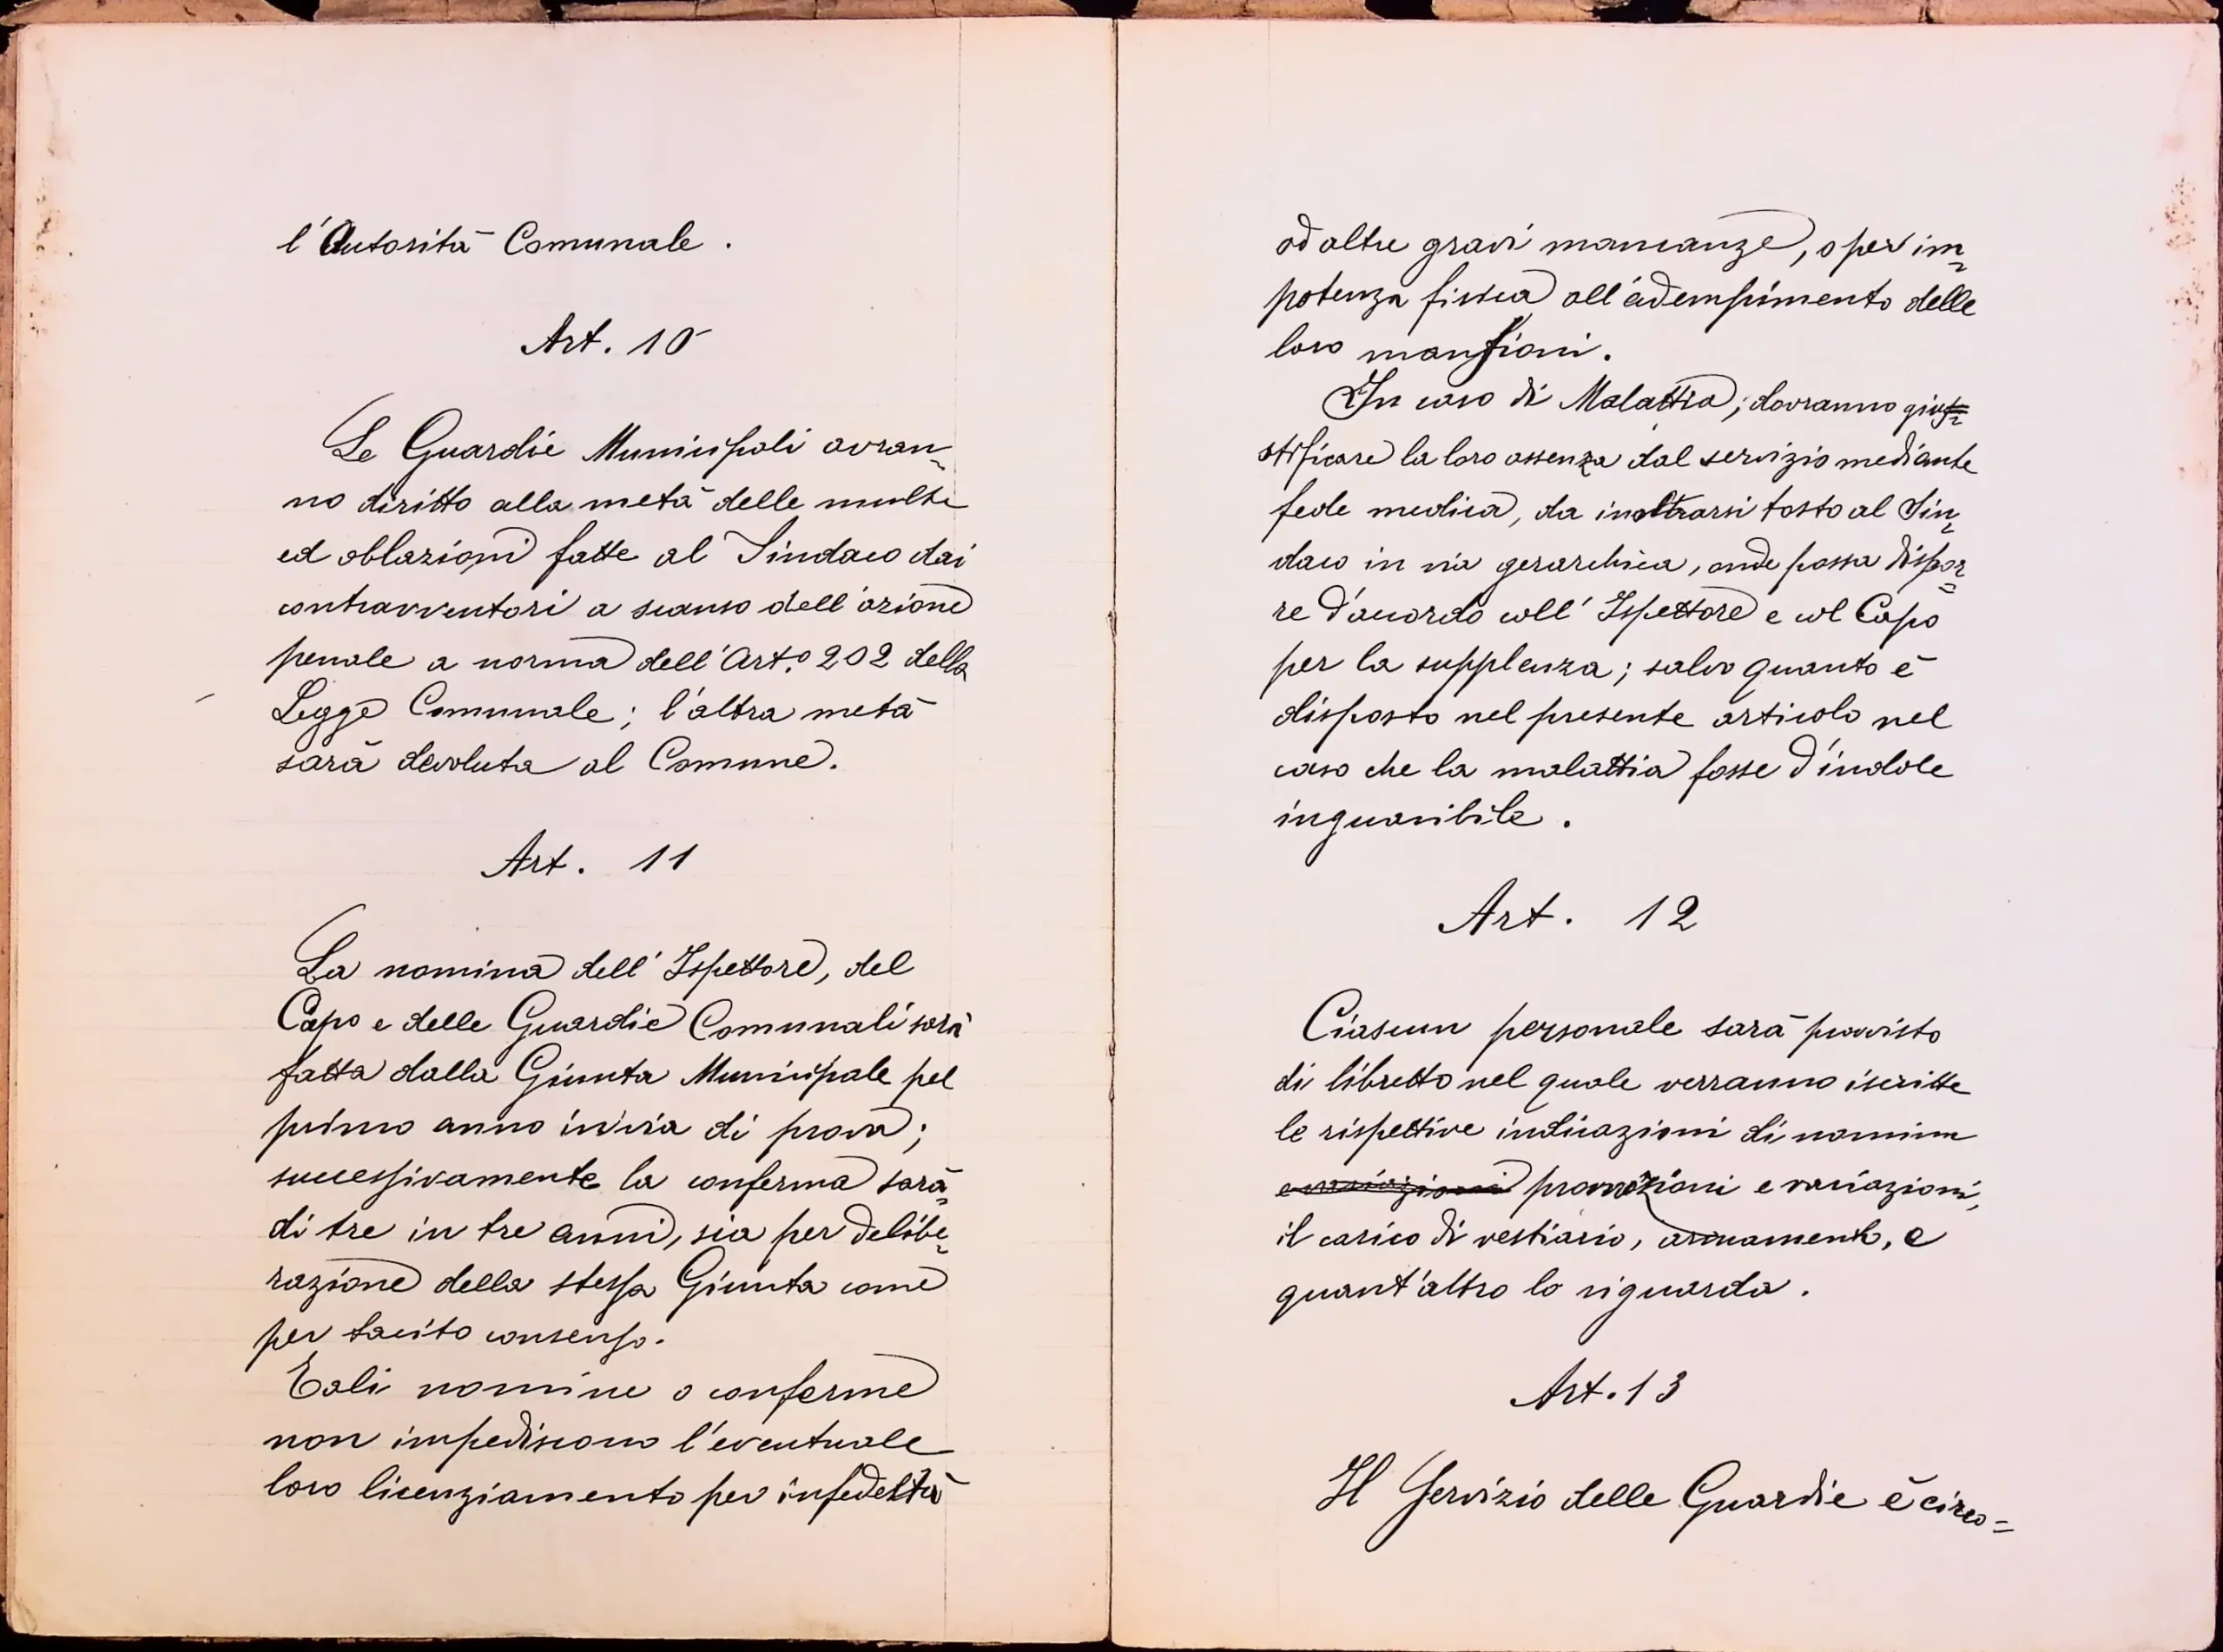 l'Autorità Comunale.
Art. 10
Le Guardie Municipali avran=
no diritto alla metà delle multe
ed oblazioni fatte al Sindaco dai
contravventori a scanso dell'azione
penale a norma dell'Art.o 202 della
Legge Comunale; l'altra metà
sarà devoluta al Comune.
Art. 11
La nomina dell'Ispettore, del
Capo e delle Guardie Comunali sarà
fatta dalla Giunta Municipale pel
primo anno in via di prova;
successivamente la conferma sarà
di tre in tre anni, sia per delibe=
razione della stessa Giunta come
per tacito consenso.
Tali nomine o conferme
non impediscono l'eventuale
loro licenziamento per infedeltà
od altre gravi mancanze, o per im=
potenza fisica all'adempimento delle
loro mansioni.
In caso di Malattia, dovranno giu=
stificare la loro assenza dal servizio mediante
fede medica, da inoltrarsi tosto al Sin=
daco in via gerarchica, onde possa dispor=
re d'accordo coll'Ispettore e col Capo
per la supplenza; salvo quanto è
disposto nel presente articolo nel
caso che la malattia fosse d'indole
inguaribile.
Art. 12
Ciascun personale sarà provvisto
di libretto nel quale verranno iscritte
le rispettive indicazioni di nomine
promozioni e variazioni,
il carico di vestiario, armamento, e
quant'altro lo riguarda.
Art. 13
Il Servizio delle Guardie è circo=